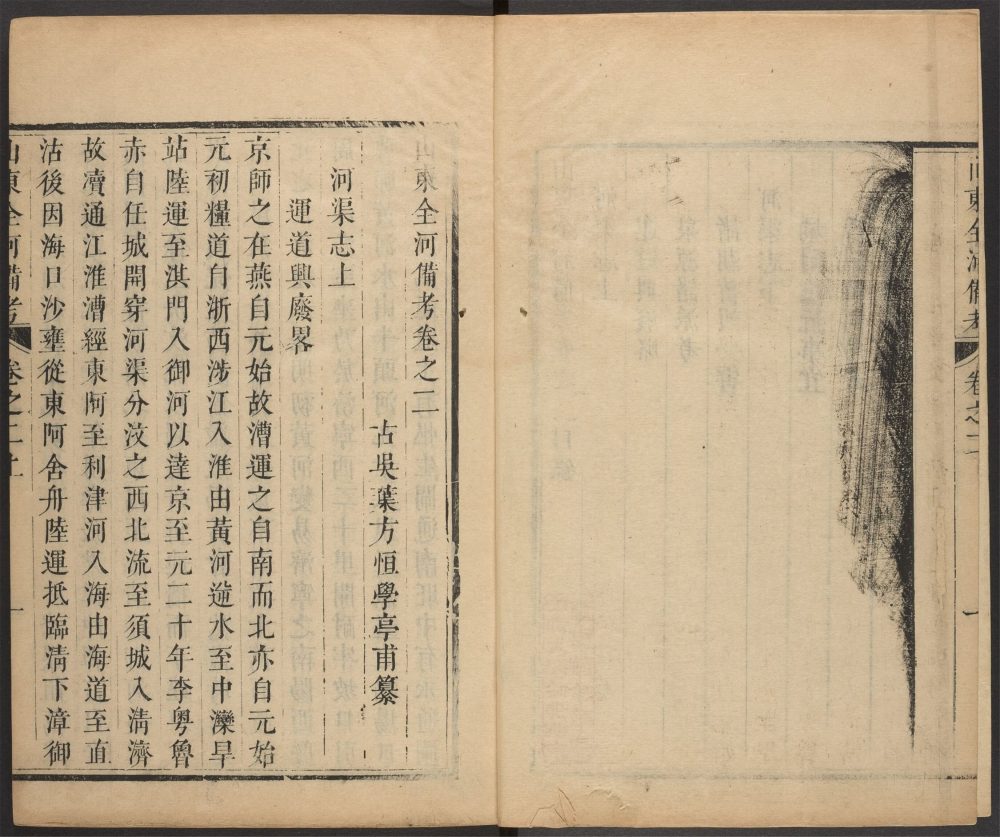 山東全河備考
卷之二
一
山東全河備考卷之二
古吳葉方恒學亭甫纂
河渠志上
運道興廢畧
京師之在燕自元始故漕運之自南而北亦自元始
元初糧道自浙西涉江入淮由黃河逆水至中灤旱
站陸運至淇門入御河以達京至元二十年李粵魯
赤自任城開穿河渠分汶之西北流至須城入淸濟
故瀆通江淮漕經東阿至利津河入海由海道至直
沽後因海口沙壅從東阿舍舟陸運抵臨淸下漳御
山東全河備考
卷之二上
一